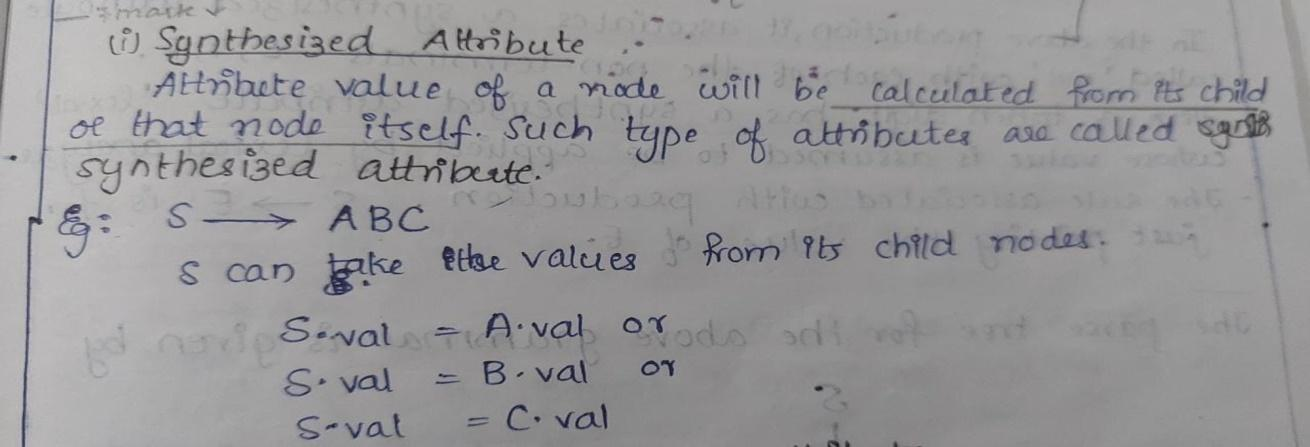 mark
(i) Synthesized Attribute :
Attribute value of a node will be calculated from its child
or that node itself. Such type of attributes are called
synthesized attribute.
Eg: S → ABC
S can take the values from its child nodes.
S.val = A.val or
S.val = B.val or
S.val = C.val